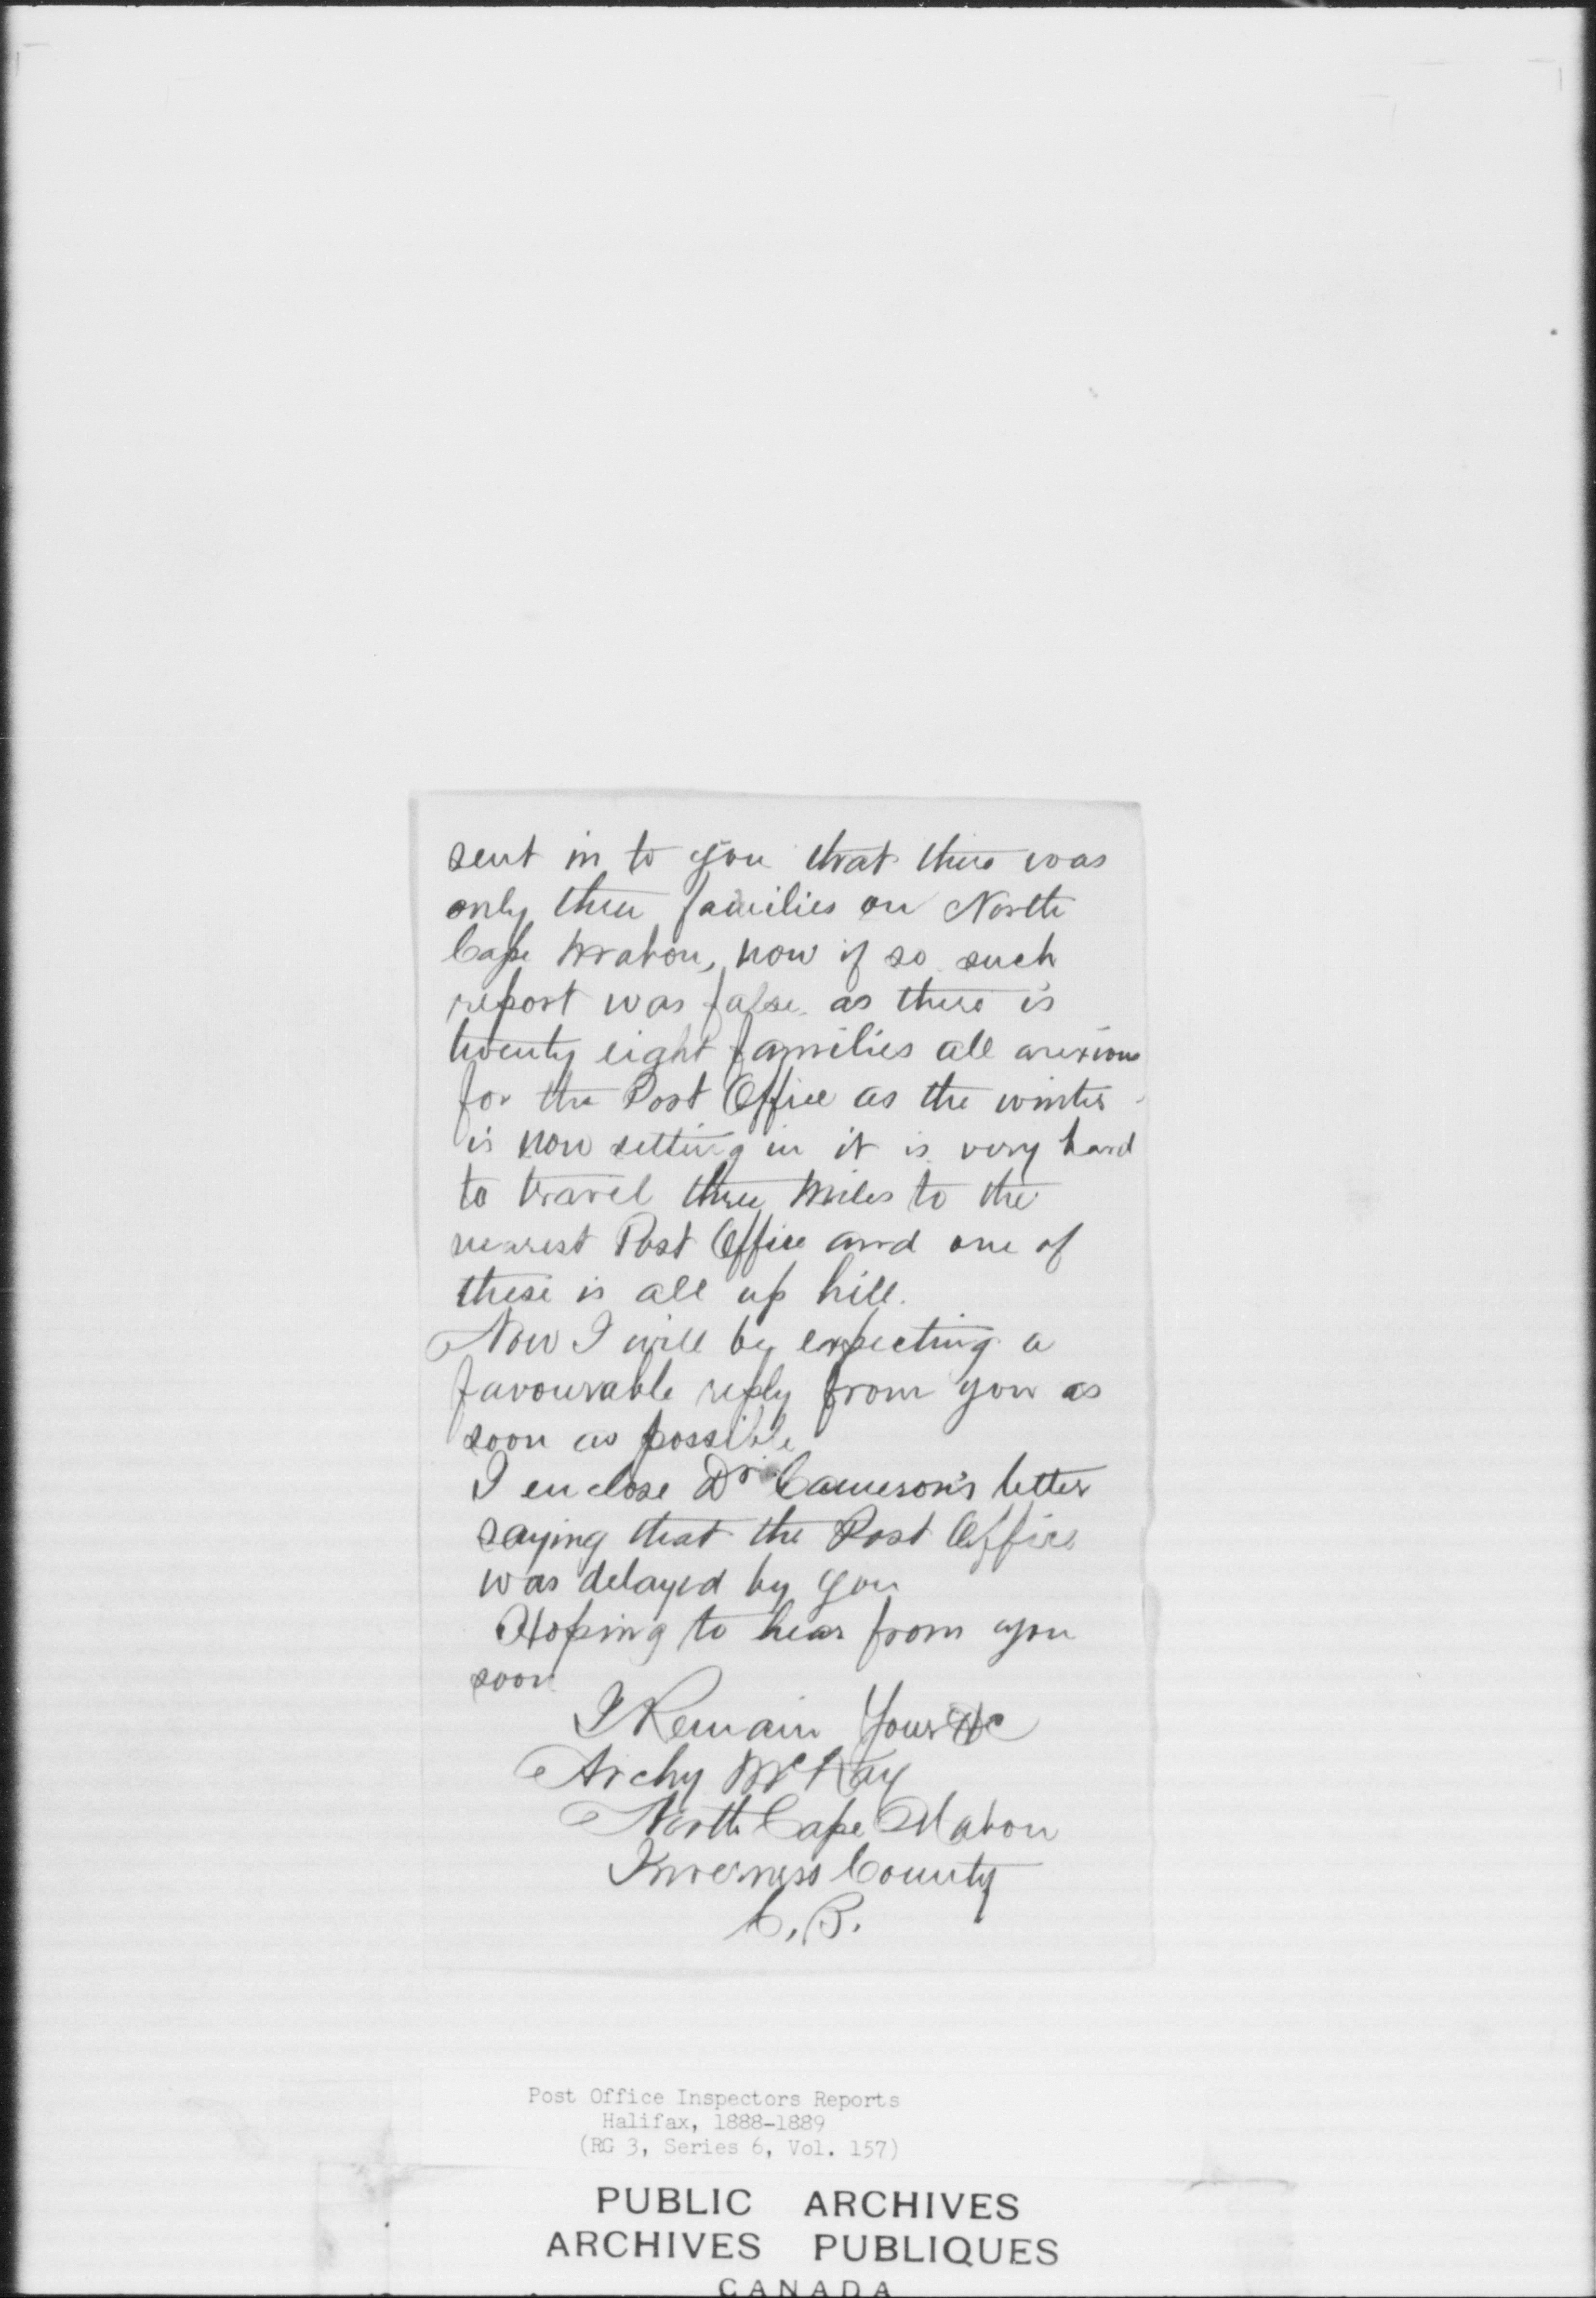 sent in to you that there was
only three families on North
Cape Mabou, now if so such
report was false as there is
twenty eight families all anxious
for the Post Office as the winter
is now setting in it is very hard
to travel three miles to the
nearest Post Office and one of
these is all up hill.
Now I will be expecting a
favourable reply from you as
soon as possible
I enclose Dr Cameron's letter
saying that the Post Office
was delayed by you
Hoping to hear from you
soon
I Remain Yours &c
Archy McKay
North Cape Mabou
Inverness County
C.B.
Post Office Inspectors Reports
Halifax, 1888-1889
(RG 3, Series 6, Vol. 157)
PUBLIC ARCHIVES
ARCHIVES PUBLIQUES
CANADA